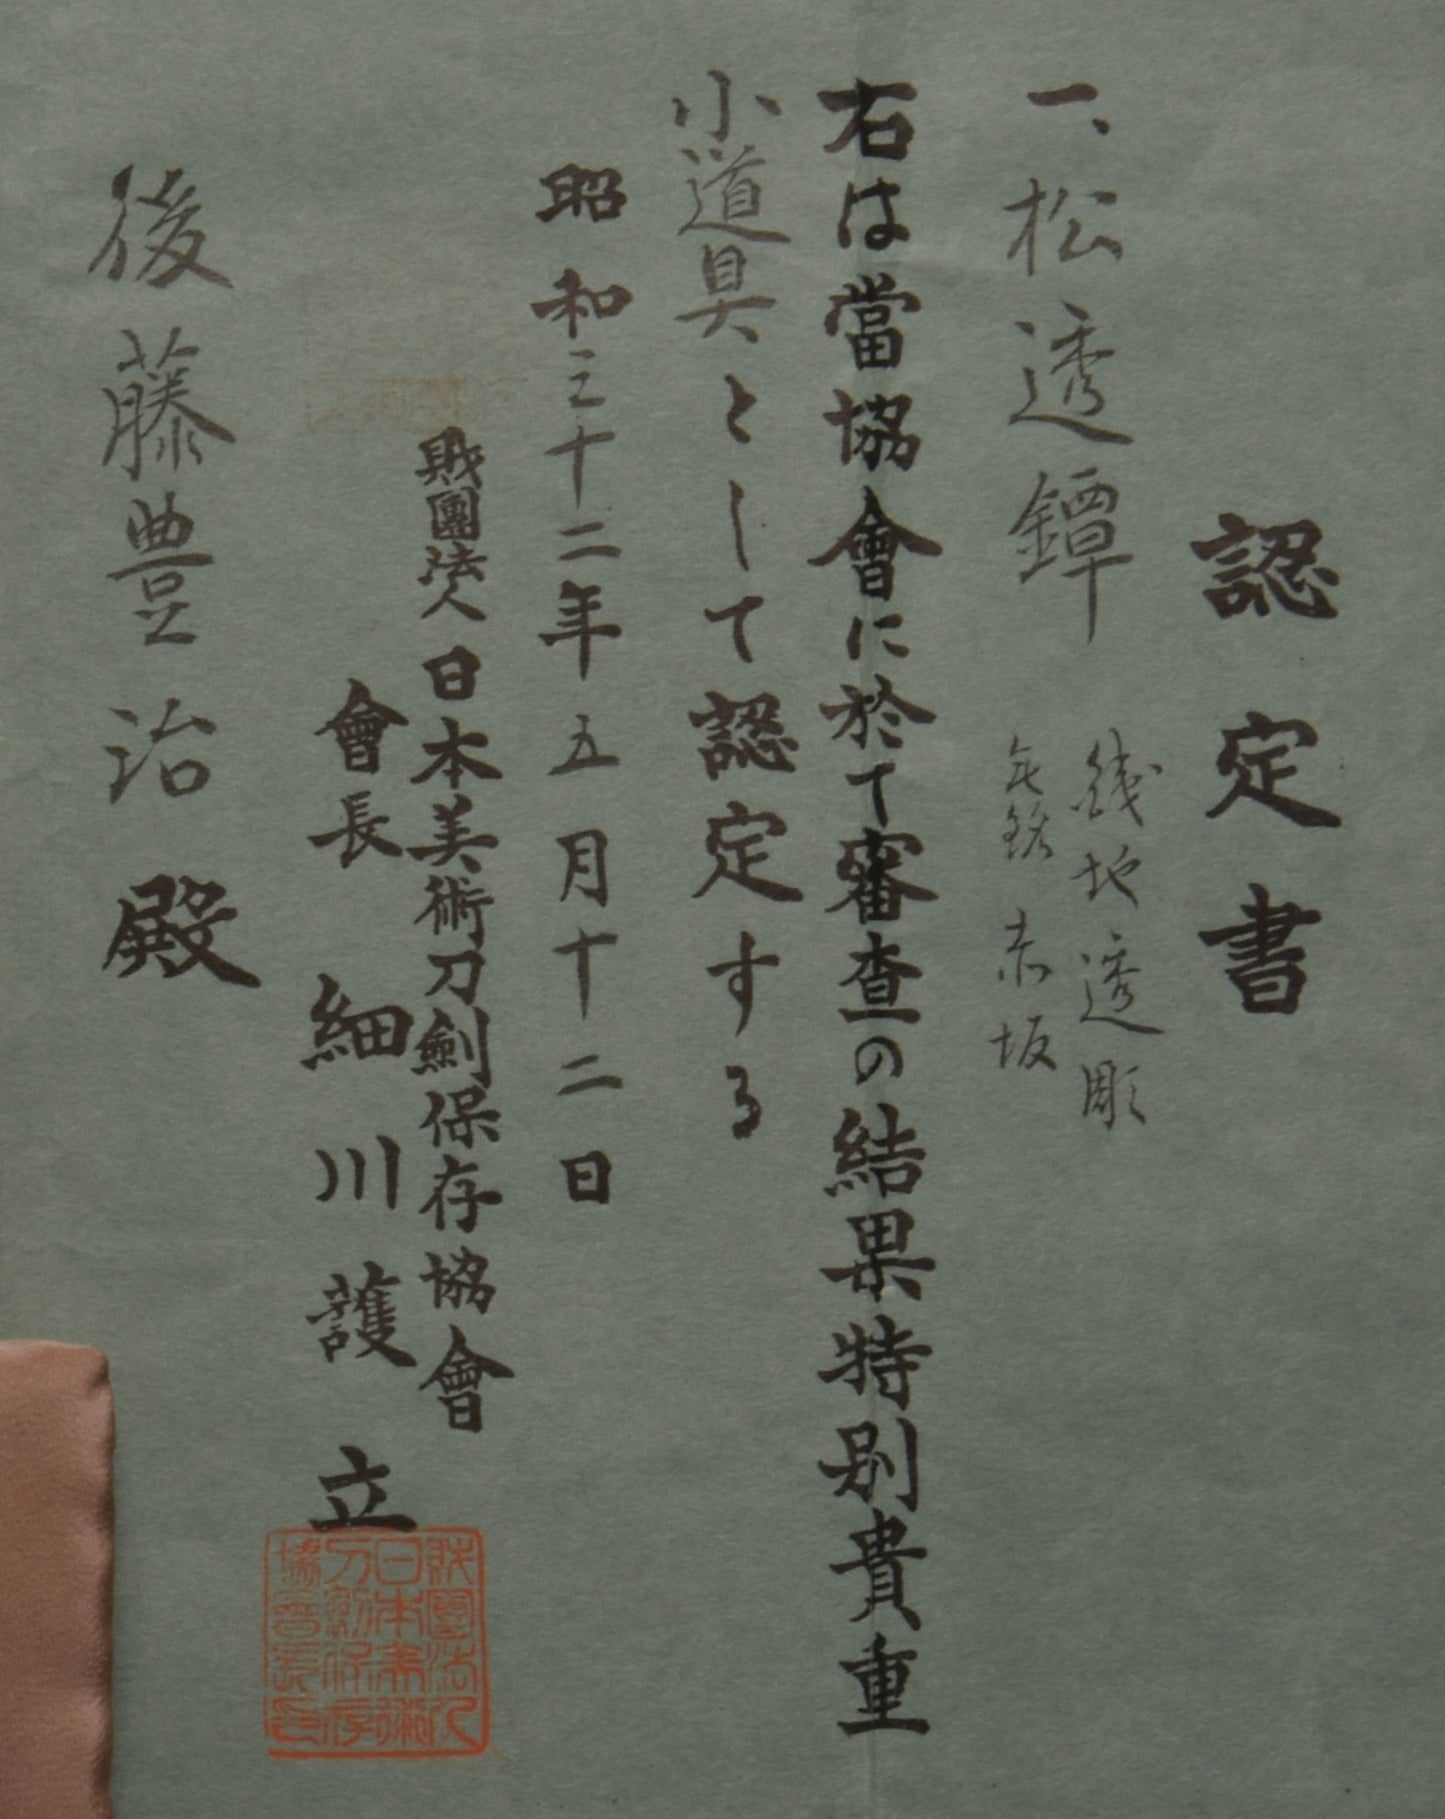 認定書
一、松透鐔
鉄地透彫
無銘 赤坂
右は當協會に於て審査の結果特別貴重
小道具として認定する
昭和三十二年五月十二日
財團法人日本美術刀劍保存協會
會長 細川護立
財團法人
日本美術
刀劍保存
協會長印
後藤豊治殿